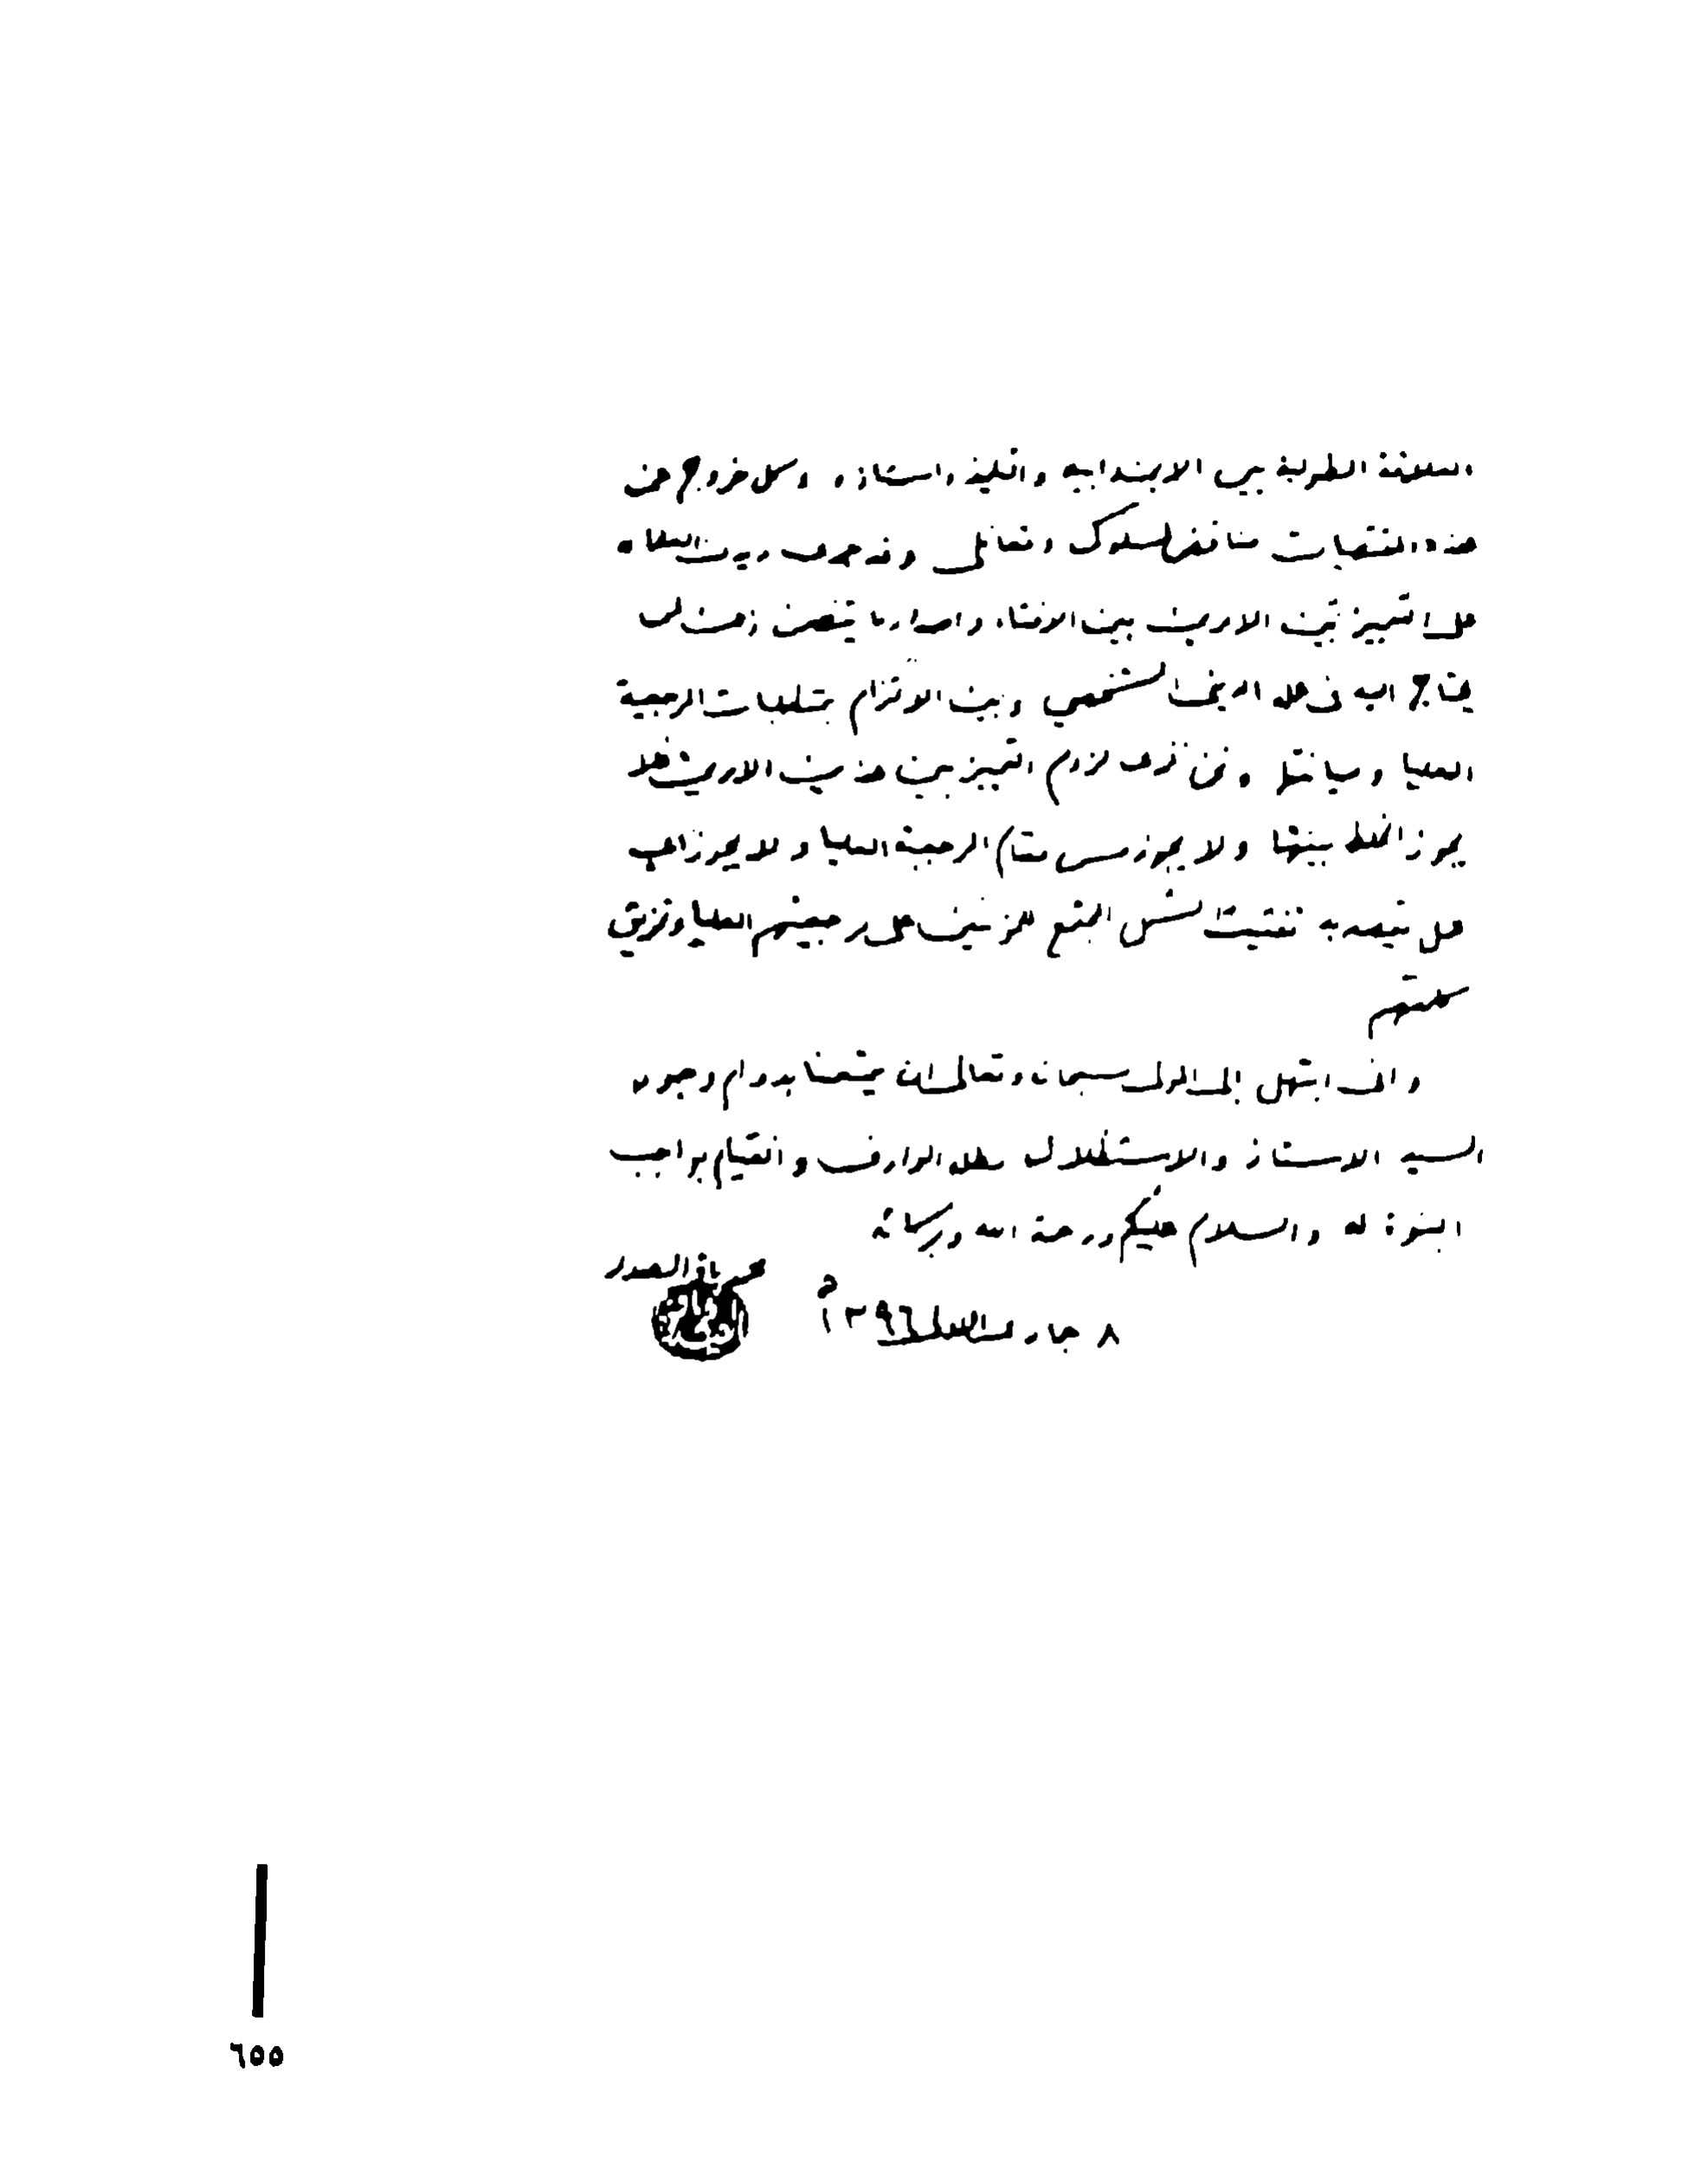 العلاقة الطولية بين الابن وابيه والتلميذ واستاذه وكل خروج عن
هذه المقتضيات مناقض لسلوكي وتعاملي وقد جرى ديدن العلماء
على التمييز بين الامرين بين الافتاء واصدار ما يتضمن ذلك لمن
يحتاج اليه في عمله الديني الشخصي وبين الالتزام بمتطلبات المرجعية
العليا وصيانتها ونحن نرى لزوم التمييز بين هذين الامرين فلا
يجوز الخلط بينهما ولا يجوز مس مقام المرجعية العليا ولا يجوز اي
عمل يقصد به تفتيت الشمل المجتمع للمؤمنين على مرجعيتهم العليا وتمزيق
كلمتهم
واني ابتهل إلى المولى سبحانه وتعالى ان يمتعنا بدوام وجود
السيد الاستاذ والاستظلال بظله الوارف والقيام بواجب
البنوة له والسلام عليكم ورحمة الله وبركاته
محمد باقر الصدر
٨ جمادى ١٣٩٦ ه
٦٥٥